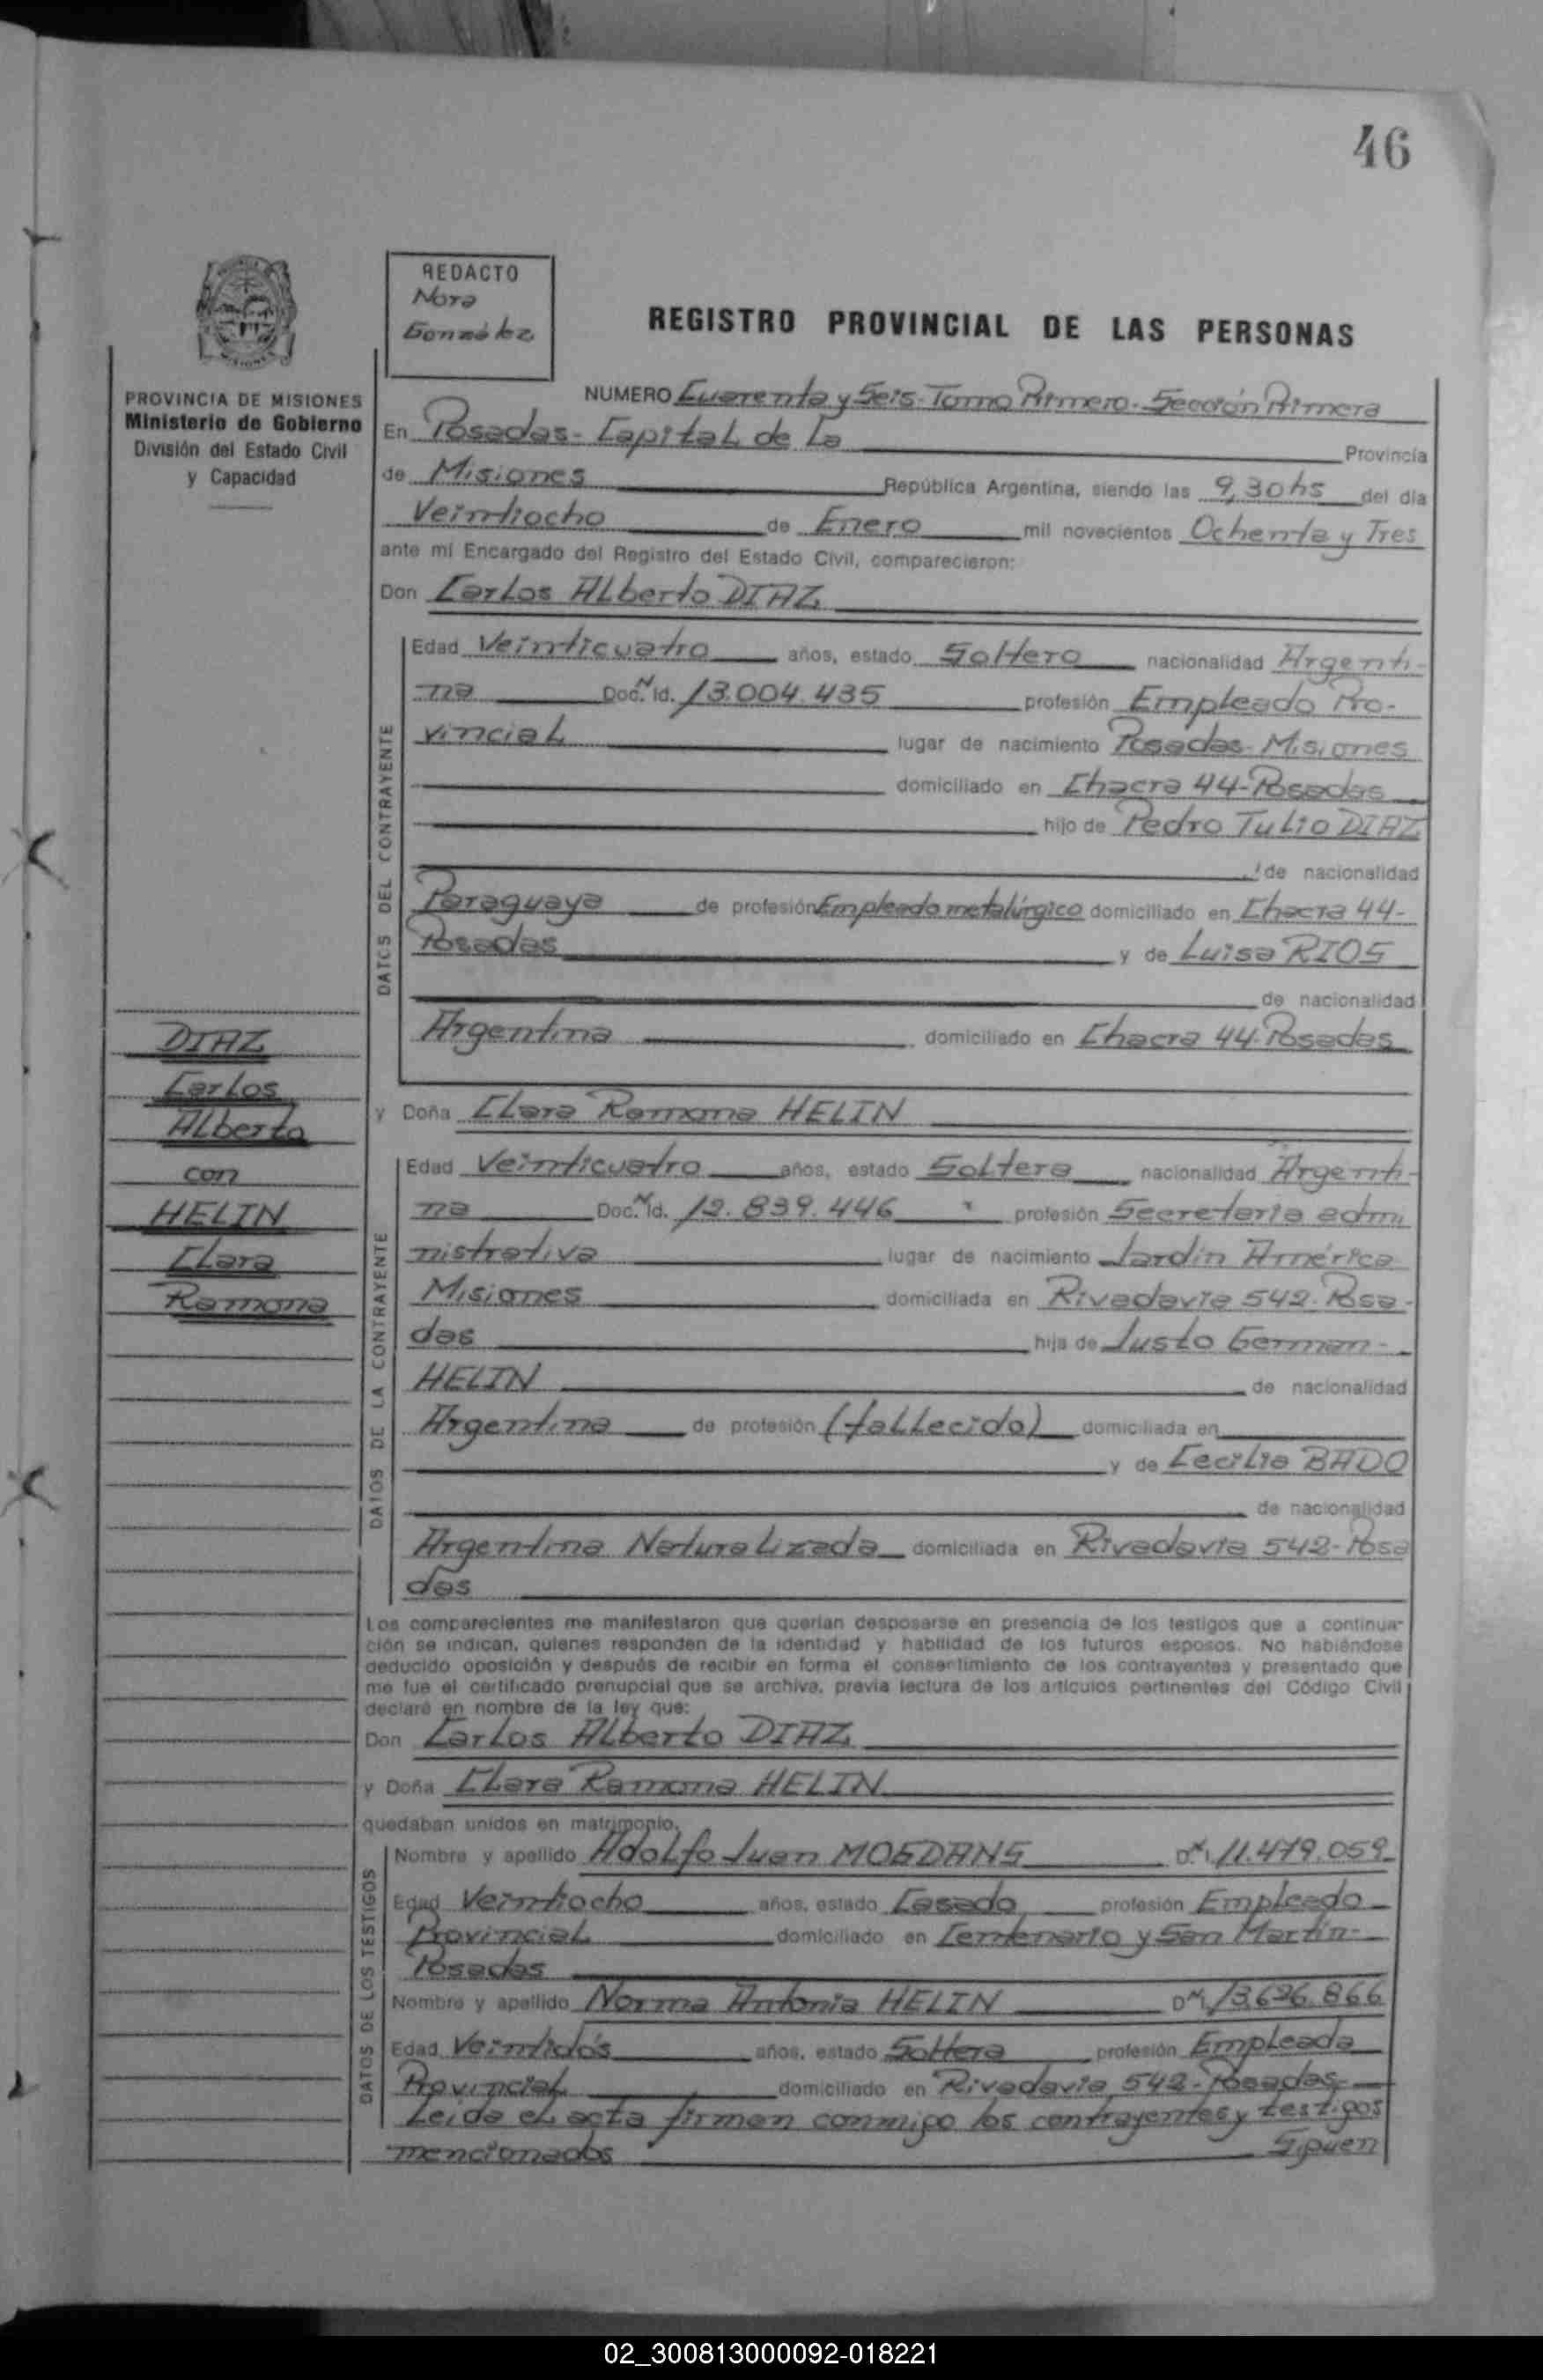 46
REDACTO
Nora
González
REGISTRO PROVINCIAL DE LAS PERSONAS
PROVINCIA DE MISIONES
Ministerio de Gobierno
División del Estado Civil
y Capacidad
NUMERO Cuarenta y Seis-Tomo Primero-Sección Primera
En Posadas-Capital de la Provincia
de Misiones República Argentina, siendo las 9,30hs del día
Veintiocho de Enero mil novecientos Ochenta y Tres
ante mí Encargado del Registro del Estado Civil, comparecieron:
Don Carlos Alberto DIAZ
DATOS DEL CONTRAYENTE
Edad Veinticuatro años, estado Soltero nacionalidad Argenti-
na Doc. N Id. 13.004.435 profesión Empleado Pro-
vincial lugar de nacimiento Posadas-Misiones
domiciliado en Chacra 44-Posadas
hijo de Pedro Tulio DIAZ
de nacionalidad
Paraguaya de profesión Empleado metalúrgico domiciliado en Chacra 44-
Posadas y de Luisa RIOS
de nacionalidad
Argentina domiciliado en Chacra 44-Posadas
DIAZ
Carlos
Alberto
con
HELIN
Clara
Ramona
y Doña Clara Ramona HELIN
DATOS DE LA CONTRAYENTE
Edad Veinticuatro años, estado Soltera nacionalidad Argenti-
na Doc. N Id. 12.839.446 profesión Secretaria admi
nistrativa lugar de nacimiento Jardín América
Misiones domiciliada en Rivadavia 542-Posa-
das hija de Justo German-
HELIN de nacionalidad
Argentina de profesión (fallecido) domiciliada en
y de Cecilia BADO
de nacionalidad
Argentina Naturalizada domiciliada en Rivadavia 542-Posa
das
Los comparecientes me manifestaron que querían desposarse en presencia de los testigos que a continua-
ción se indican, quienes responden de la identidad y habilidad de los futuros esposos. No habiéndose
deducido oposición y después de recibir en forma el consentimiento de los contrayentes y presentado que
me fue el certificado prenupcial que se archiva, previa lectura de los artículos pertinentes del Código Civil
declaré en nombre de la ley que:
Don Carlos Alberto DIAZ
y Doña Clara Ramona HELIN
quedaban unidos en matrimonio.
DATOS DE LOS TESTIGOS
Nombre y apellido Adolfo Juan MOGDANS D.N.I. 11.479.059
Edad Veintiocho años, estado Casado profesión Empleado
Provincial domiciliado en Centenario y San Martín-
Posadas
Nombre y apellido Norma Antonia HELIN DNI 13.626.866
Edad Veintidós años, estado Soltera profesión Empleada
Provincial domiciliado en Rivadavia 542-Posadas-
Leída el acta firman conmigo los contrayentes y testigos
mencionados Siguen
02_300813000092-018221